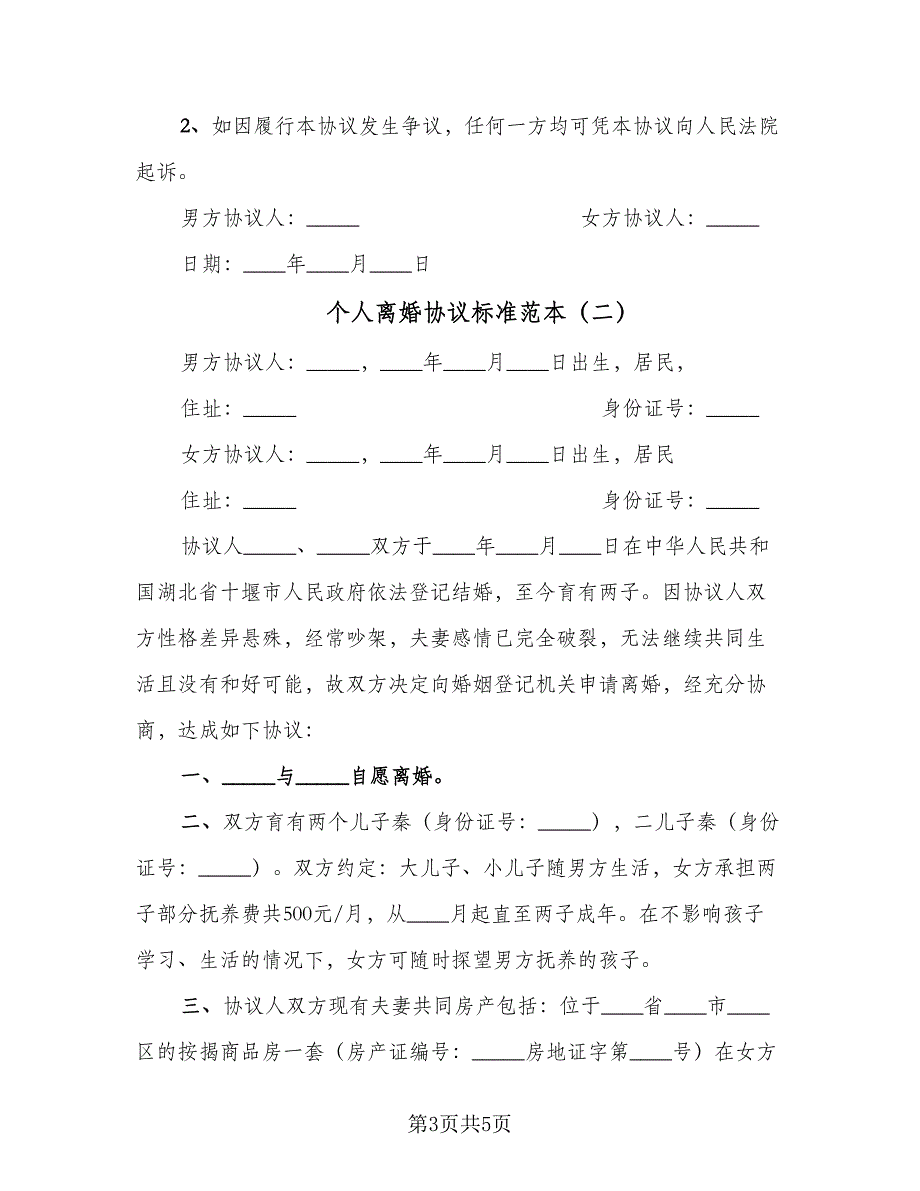 2、如因履行本协议发生争议，任何一方均可凭本协议向人民法院
起诉。
男方协议人：_____ 女方协议人：_____
日期：____年____月____日
个人离婚协议标准范本（二）
男方协议人：_____，____年____月____日出生，居民，
住址：_____ 身份证号：_____
女方协议人：_____，____年____月____日出生，居民
住址：_____ 身份证号：_____
协议人_____、_____双方于____年____月____日在中华人民共和
国湖北省十堰市人民政府依法登记结婚，至今育有两子。因协议人双
方性格差异悬殊，经常吵架，夫妻感情已完全破裂，无法继续共同生
活且没有和好可能，故双方决定向婚姻登记机关申请离婚，经充分协
商，达成如下协议：
一、_____与_____自愿离婚。
二、双方育有两个儿子秦（身份证号：_____），二儿子秦（身份
证号：_____）。双方约定：大儿子、小儿子随男方生活，女方承担两
子部分抚养费共500元/月，从____月起直至两子成年。在不影响孩子
学习、生活的情况下，女方可随时探望男方抚养的孩子。
三、协议人双方现有夫妻共同房产包括：位于____省____市____
区的按揭商品房一套（房产证编号：_____房地证字第____号）在女方
第3页共5页